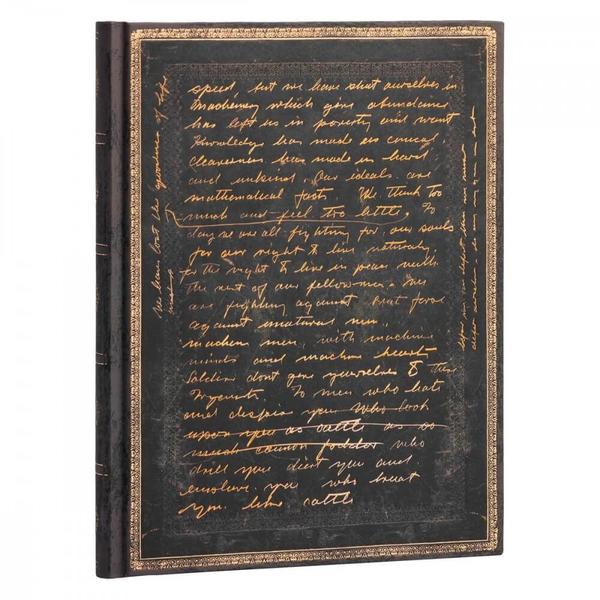 speed, but we have shut ourselves in
Machinery which gives abundance
has left us in poverty and want
Knowledge has made us cynical
cleverness has made us hard
and unkind. Our ideals are
mathematical facts. We think too
much and feel too little. To
day we are all fighting for our souls
for our right to live naturally
for the right to live in peace with
the rest of our fellowmen. We
are fighting against that force
against unnatural men.
machine men, with machine
minds and machine hearts
Soldiers dont give yourselves to these
Tyrants. To men who hate
and despise you who look
upon you as cattle as so
much cannon fodder who
drill you diet you and
enslave you who treat
you like cattle
We have lost the goodness of life